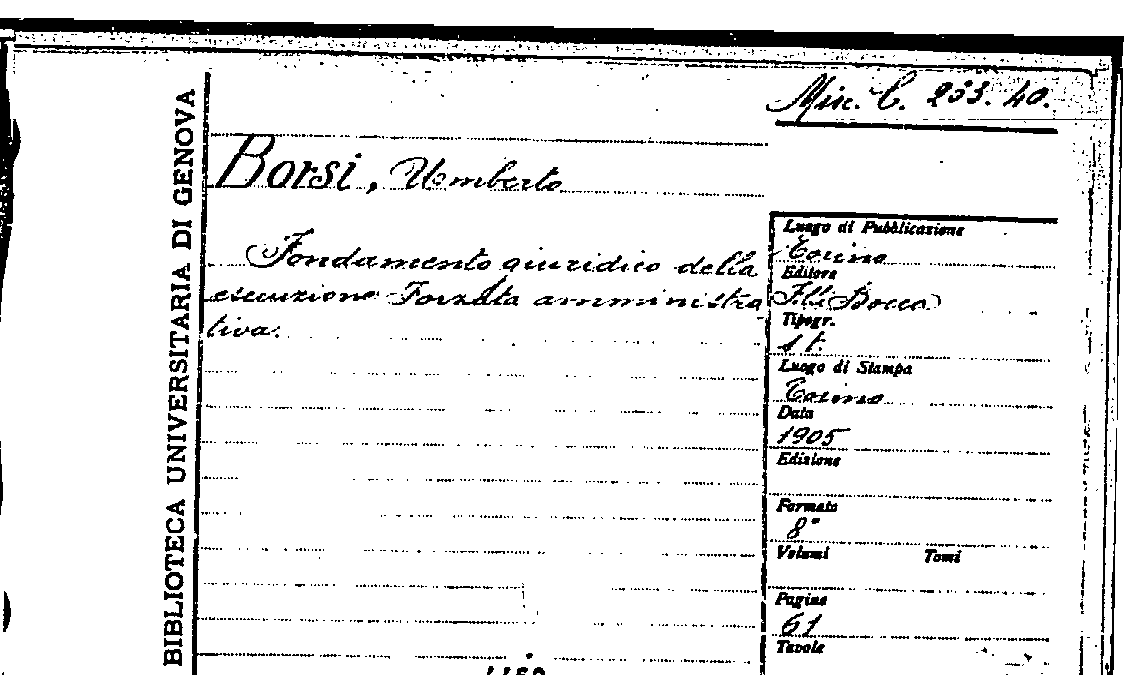 BIBLIOTECA UNIVERSITARIA DI GENOVA
Misc. C. 253. 40.
Borsi, Umberto
Fondamento giuridico della
esecuzione Forzata amministra
tiva.
Luogo di Pubblicazione
Torino
Editore
F.lli Bocca
Tipogr.
s t.
Luogo di Stampa
Torino
Data
1905
Edizione
Formato
8°
Volumi Tomi
Pagine
61
Tavole